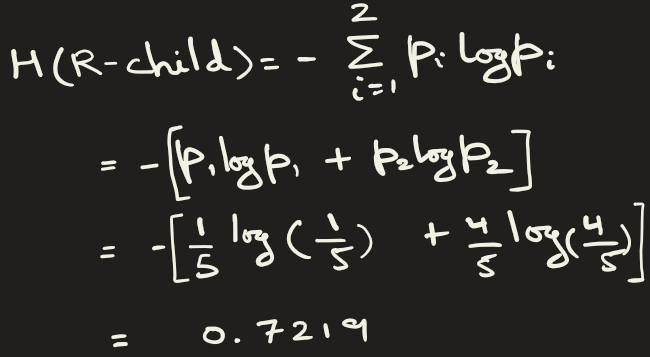 H(R-child) = - 2∑i=1 pi log pi
= -[p1 log p1 + p2 log p2]
= -[1/5 log (1/5) + 4/5 log(4/5)]
= 0.7219